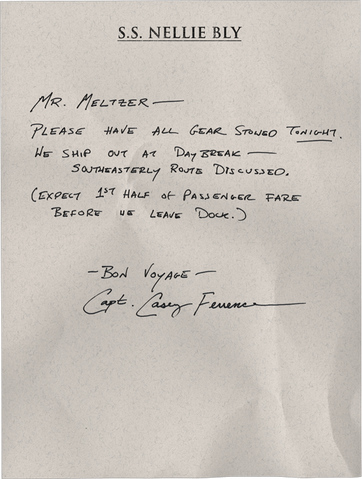 S.S. NELLIE BLY
MR. MELTZER—
PLEASE HAVE ALL GEAR STOWED TONIGHT.
WE SHIP OUT AT DAYBREAK—
SOUTHEASTERLY ROUTE DISCUSSED.
(EXPECT 1ST HALF of PASSENGER FARE
BEFORE WE LEAVE DOCK.)
—BON VOYAGE—
Capt. Casey Ference